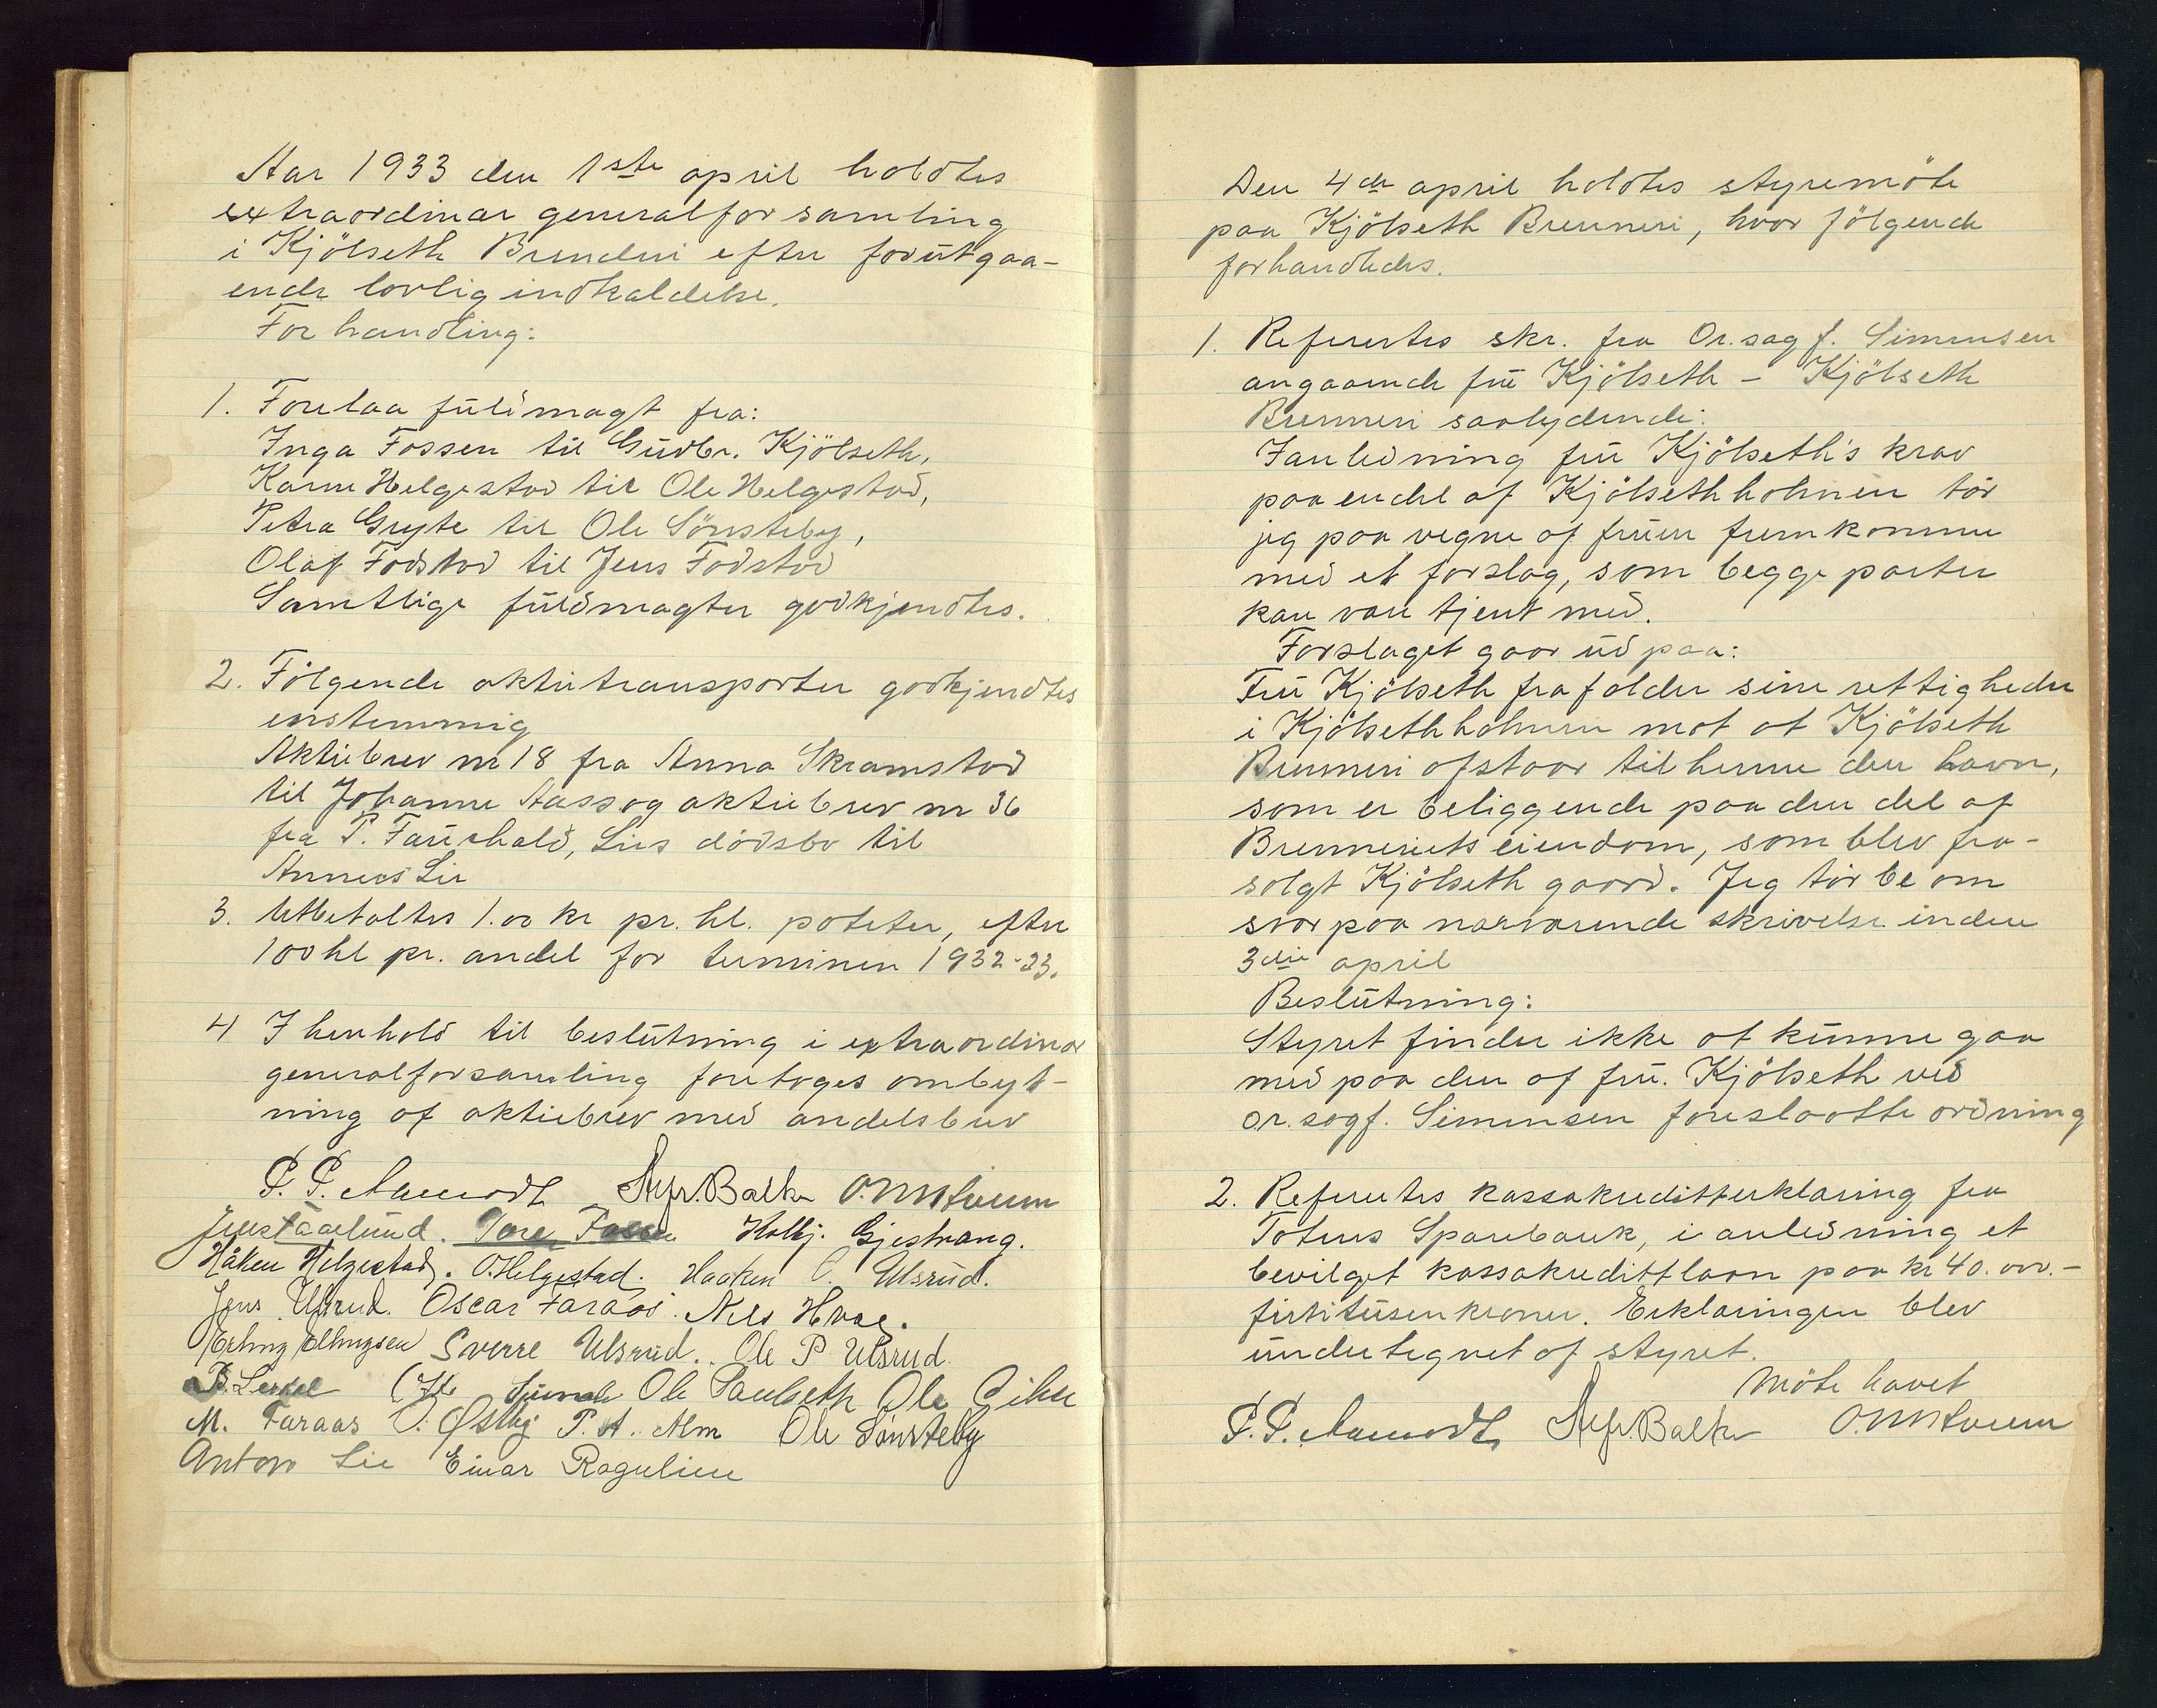 Aar 1933 den 1ste april holdtes
extraordinær generalforsamling
i Kjölseth Brenderi efter forutgaa-
ende lovlig indkaldelse.
Forhandling:
1. Forelaa fuldmagt fra:
Inga Fossen til Gudbr. Kjölseth,
Karen Helgestad til Ole Helgestad,
Petra Gryte til Ole Sönsteby,
Olaf Fodstad til Jens Fodstad
Samtlige fuldmagter godkjendtes.
2. Fölgende aktietransporter godkjendtes
enstemmig
Aktiebrev nr 18 fra Anna Skramstad
til Johanne Aass og aktiebrev nr 36
fra P. Fauchald, Lies dödsbo til
Anneus Lie
3. Utbetaltes 1.00 kr pr. hl. poteter, efter
100 hl pr. andel for terminen 1932-33.
4 I henhold til beslutning i extraordinær
generalforsamling foretoges ombyt-
ning af aktiebrev med andelsbrev
P. P. Aamodt Balke O. M. Stuum
Faarlund. Tore Fossen Kolbj. Gjestvang.
Håken Helgestad. O. Helgestad. Haaken O. Ulsrud.
Jens Ulsrud. Oscar Faraas. Nils Hoae.
Erling Ellingsen Sverre Ulsrud. Ole P Ulsrud.
Ole Ole Gihle
M. Faraas O. Østby P. A. Alm Ole Sönsteby
Anton Lie Einar Rognlien
Den 4de april holdtes styremöte
paa Kjölseth Brenneri, hvor fölgende
forhandledes.
1. Refereretes skr. fra Or.sagf. Simensen
angaaende fru Kjölseth – Kjölseth
Brenneri saalydende:
I anledning fru Kjölseth's krav
paa endel af Kjölsethholmen tör
jeg paa vegne af fruen fremkomme
med et forslag, som begge parter
kan være tjent med.
Forslaget gaar ud paa:
Fru Kjölseth frafalder sine rettigheder
i Kjölsethholmen mot at Kjölseth
Brenneri afstaar til henne den havn,
som er beliggende paa den del af
Brenneriets eiendom, som blev fra-
solgt Kjölseth gaard. Jeg tör be om
svar paa nærværende skrivelse inden
3die april
Beslutning:
Styret finder ikke at kunne gaa
med paa den af fru. Kjölseth ved
or.sagf. Simensen foreslaatte ordning
2. Referertes kassakredittærklæring fra
Totens Sparebank, i anledning et
bevilget kassakredittlaan paa kr 40.000.–
firtitusenkroner. Erklæringen blev
undertegnet af styret.
Möte hævet
P. P. Aamodt Balke O. M. Stuum